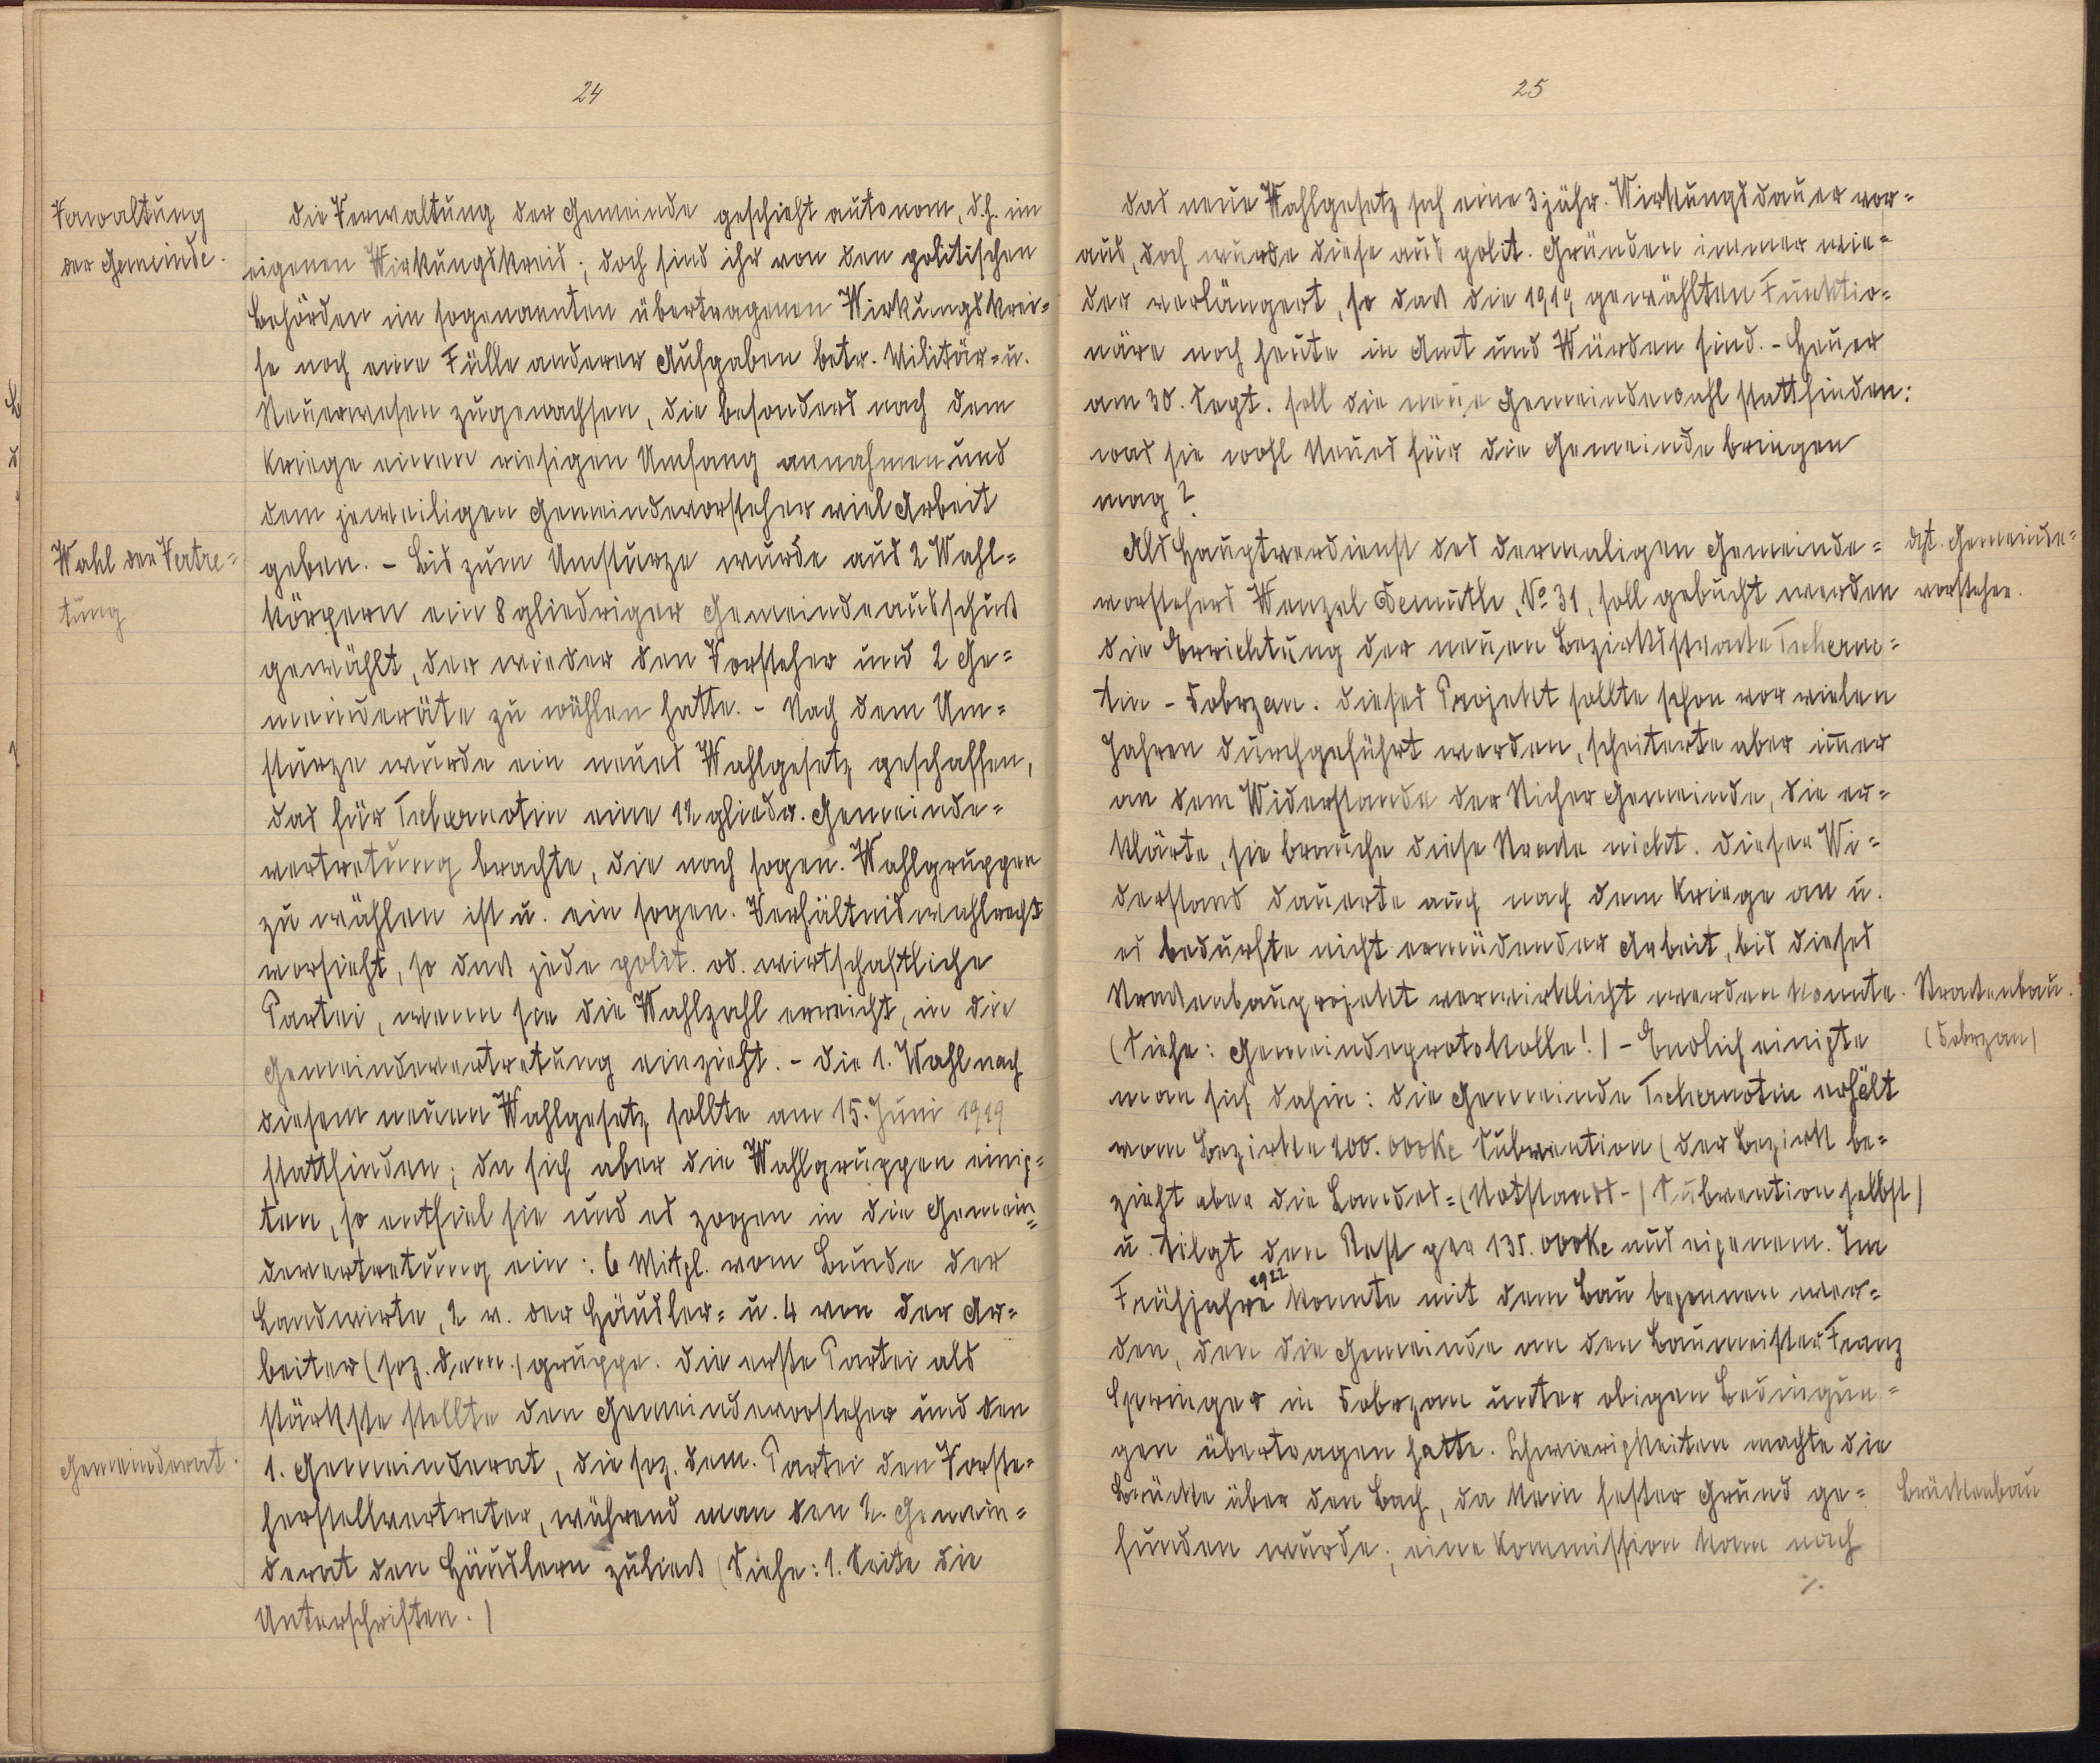 24
Verwaltung
der Gemeinde.
Die Verwaltung der Gemeinde geschieht autonom, d.h. im
eigenen Wirkungskreis; doch sind ihr von den politischen
Behörden im sogenannten übertragenen Wirkungskrei=
se noch eine Fülle anderer Aufgaben betr. Militär= u.
Steuerwesen zugewachsen, die besonders nach dem
Kriege einen riesigen Umfang annahmen und
dem jeweiligen Gemeindevorsteher viel Arbeit
Wahl der Vertre=
tung
geben. - Bis zum Umsturze wurde aus 2 Wahl=
körpern ein 8 gliedriger Gemeindeausschuß
gewählt, der wieder den Vorsteher und 2 Ge=
meinderäte zu wählen hatte. - Nach dem Um=
sturze wurde ein neues Wahlgesetz geschaffen,
das für Tschernotin eine 12 gliedr. Gemeinde=
vertretung brachte, die nach sogen. Wahlgruppen
zu wählen ist u. ein sogen. Verhältniswahlrecht
vorsieht, so daß jede polit. od. wirtschaftliche
Partei, wenn sie die Wahlzahl erreicht, in die
Gemeindevertretung einzieht. - Die 1. Wahl nach
diesem neuen Wahlgesetz sollte am 15. Juni 1919
stattfinden; da sich aber die Wahlgruppen einig=
ten, so entfiel sie und es zogen in die Gemein=
devertretung ein: 6 Mitgl. vom Bunde der
Landwirte, 2 v. der Häusler= u. 4 von der Ar=
beiter (soz. dem.) gruppe. Die erste Partei als
stärkste stellte den Gemeindevorsteher und den
Gemeinderat.
1. Gemeinderat, die soz. dem. Partei den Vorste=
herstellvertreter, während man den 2. Gemein=
derat den Häuslern zuließ (Siehe: 1. Seite die
Unterschriften.)
25
Das neue Wahlgesetz sah eine 3 jähr. Wirkungsdauer vor=
aus, doch wurde diese aus polit. Gründen immer wie=
der verlängert, so daß die 1919 gewählten Funktio=
näre noch heute in Amt und Würden sind. - Heuer
am 30. Sept. soll die neue Gemeindewahl stattfinden:
was sie wohl Neues für die Gemeinde bringen
mag?
Als Hauptverdienst des dermaligen Gemeinde=
vorstehers Wenzel Demuth, No 31, soll gebucht werden
dzt. Gemeinde=
vorsteher.
die Errichtung der neuen Bezirksstraße Tscherno=
tin - Dobrzan. Dieses Projekt sollte schon vor vielen
Jahren durchgeführt werden, scheiterte aber im̅er
an dem Widerstande der Sticher Gemeinde, die er=
klärte, sie brauche diese Straße nicht. Dieser Wi=
derstand dauerte auch nach dem Kriege an u.
es bedurfte nicht ermüdender Arbeit, bis dieses
Straßenbauprojekt verwirklicht werden konnte.
Straßenbau.
(Dobrzan)
(Siehe: Gemeindeprotokolle!) - Endlich einigte
man sich dahin: die Gemeinde Tschernotin erhält
vom Bezirke 200.000Kc Subvention (der Bezirk be=
zieht aber die Landes=(Notstands-) Subvention selbst)
u. tilgt den Rest per 135.000Kc aus eigenem. Im
Frühjahre 1922 konnte mit dem Bau begonnen wer=
den, den die Gemeinde an den Baumeister Franz
Springer in Dobrzan unter obigen Bedingun=
gen übertragen hatte. Schwierigkeiten machte die
Brücke über den Bach, da kein fester Grund ge=
Brückenbau
funden wurde; eine Kommission kam nach
./.